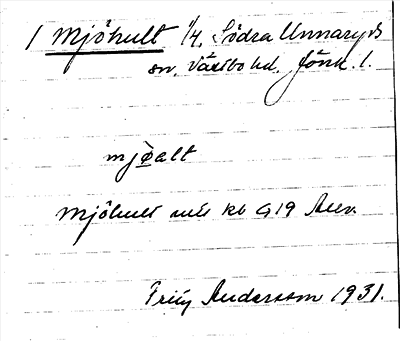 1 Mjöhult 1/4, Södra Unnaryds
sn, Västbo hd, Jönk. l.
mjøalt
Mjöhult kb G19
Andersson 1931.